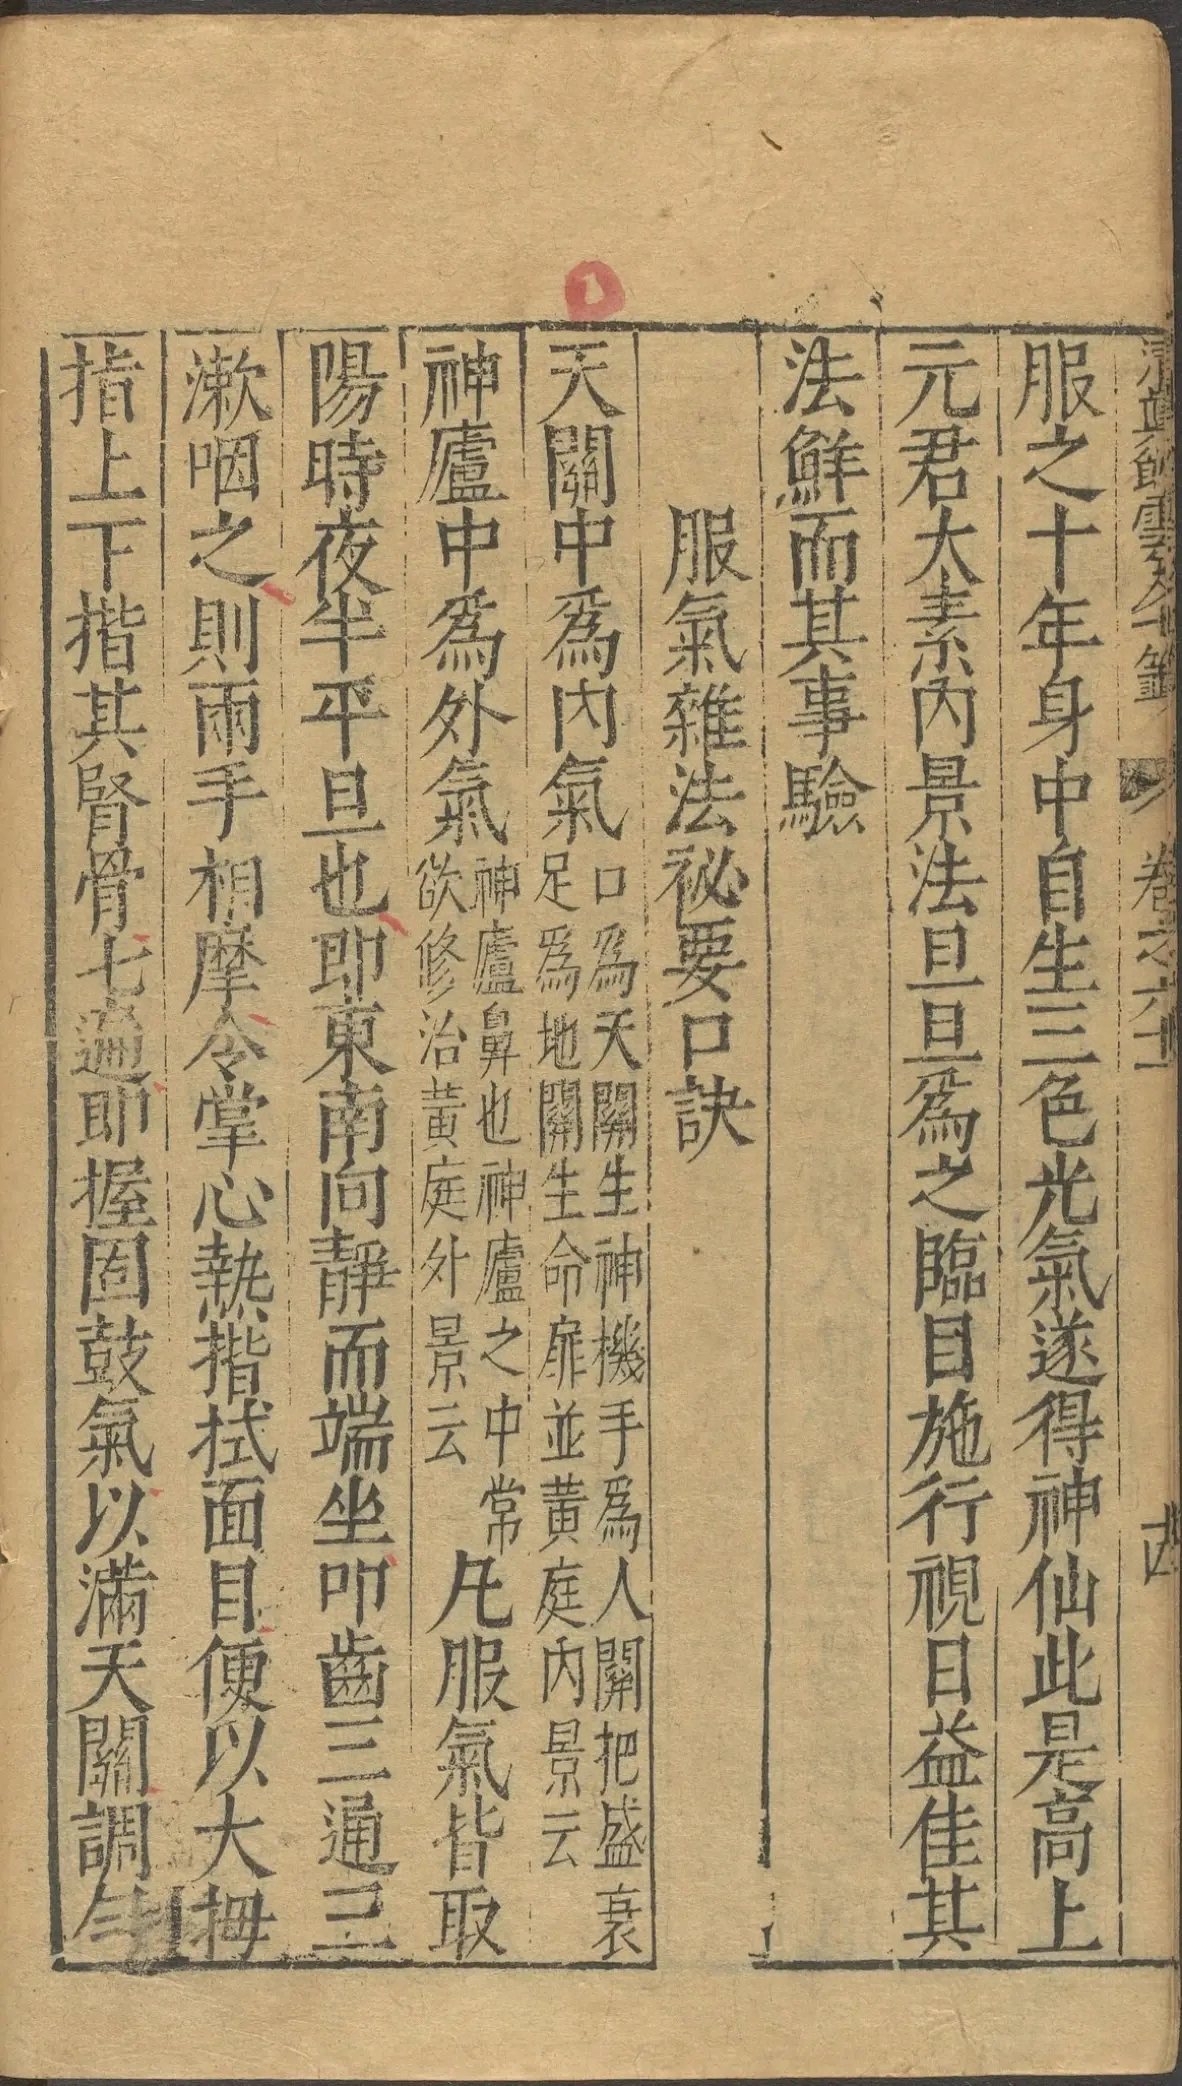 卷之六十
服之十年身中自生三色光氣遂得神仙此是高上
元君大素內景法旦旦爲之臨目施行視日益佳其
法鮮而其事驗
服氣雜法祕要口訣
天關中爲內氣口爲天關生神機手爲人關把盛衰足爲地關生命扉並黃庭內景云
神廬中爲外氣神廬鼻也神廬之中常欲修治黃庭外景云凡服氣皆取
陽時夜半平旦也即東南向靜而端坐叩齒三通三
漱咽之則兩手相摩令掌心熱揩拭面目便以大拇
指上下揩其腎骨七遍即握固鼓氣以滿天關調